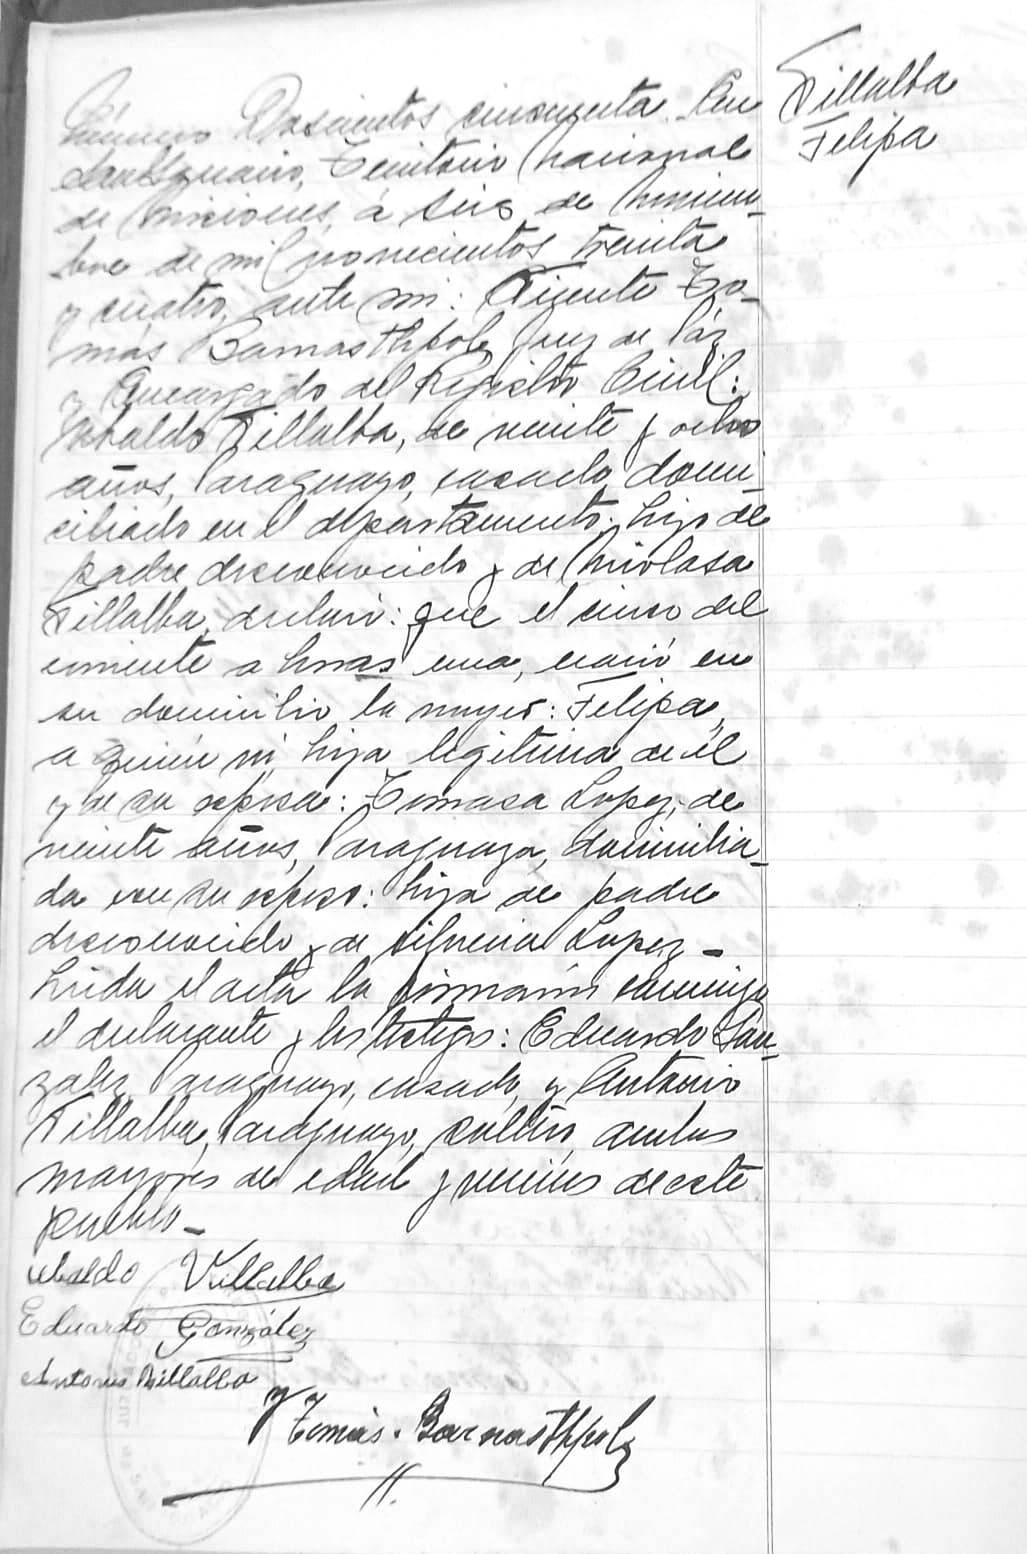 Villalba
Felipa
Número Doscientos cincuenta. En
San Ignacio, Territorio Nacional
de Misiones, á seis de Noviem-
bre de mil novecientos treinta
y cuatro, ante mi: Vicente To-
más Barnasthpolz Juez de Páz
y Encargado del Registro Civil:
Ubaldo Villalba, de veinte y ocho
años, Paraguayo, casado, domi-
ciliado en el departamento, hijo de
padre desconocido y de Nicolasa
Villalba, declaró: que el cinco del
corriente a horas una, nació en
su domicilio la mujer: Felipa,
a quien ví, hija legitima de él
y de su esposa: Tomasa Lopez, de
veinte años, Paraguaya, domicilia-
da con su esposo: hija de padre
desconocido y de Lopez.-
Leída el acta la firmaron conmigo
el declarante y los testigos: Eduardo Gon-
zalez, Paraguayo, casado, y Antonio
Villalba, Paraguayo, soltero, ambos
mayores de edad y vecinos de este
pueblo.-
Ubaldo Villalba
Eduardo González
Antonio Villalba
V Tomás Barnasthpolz